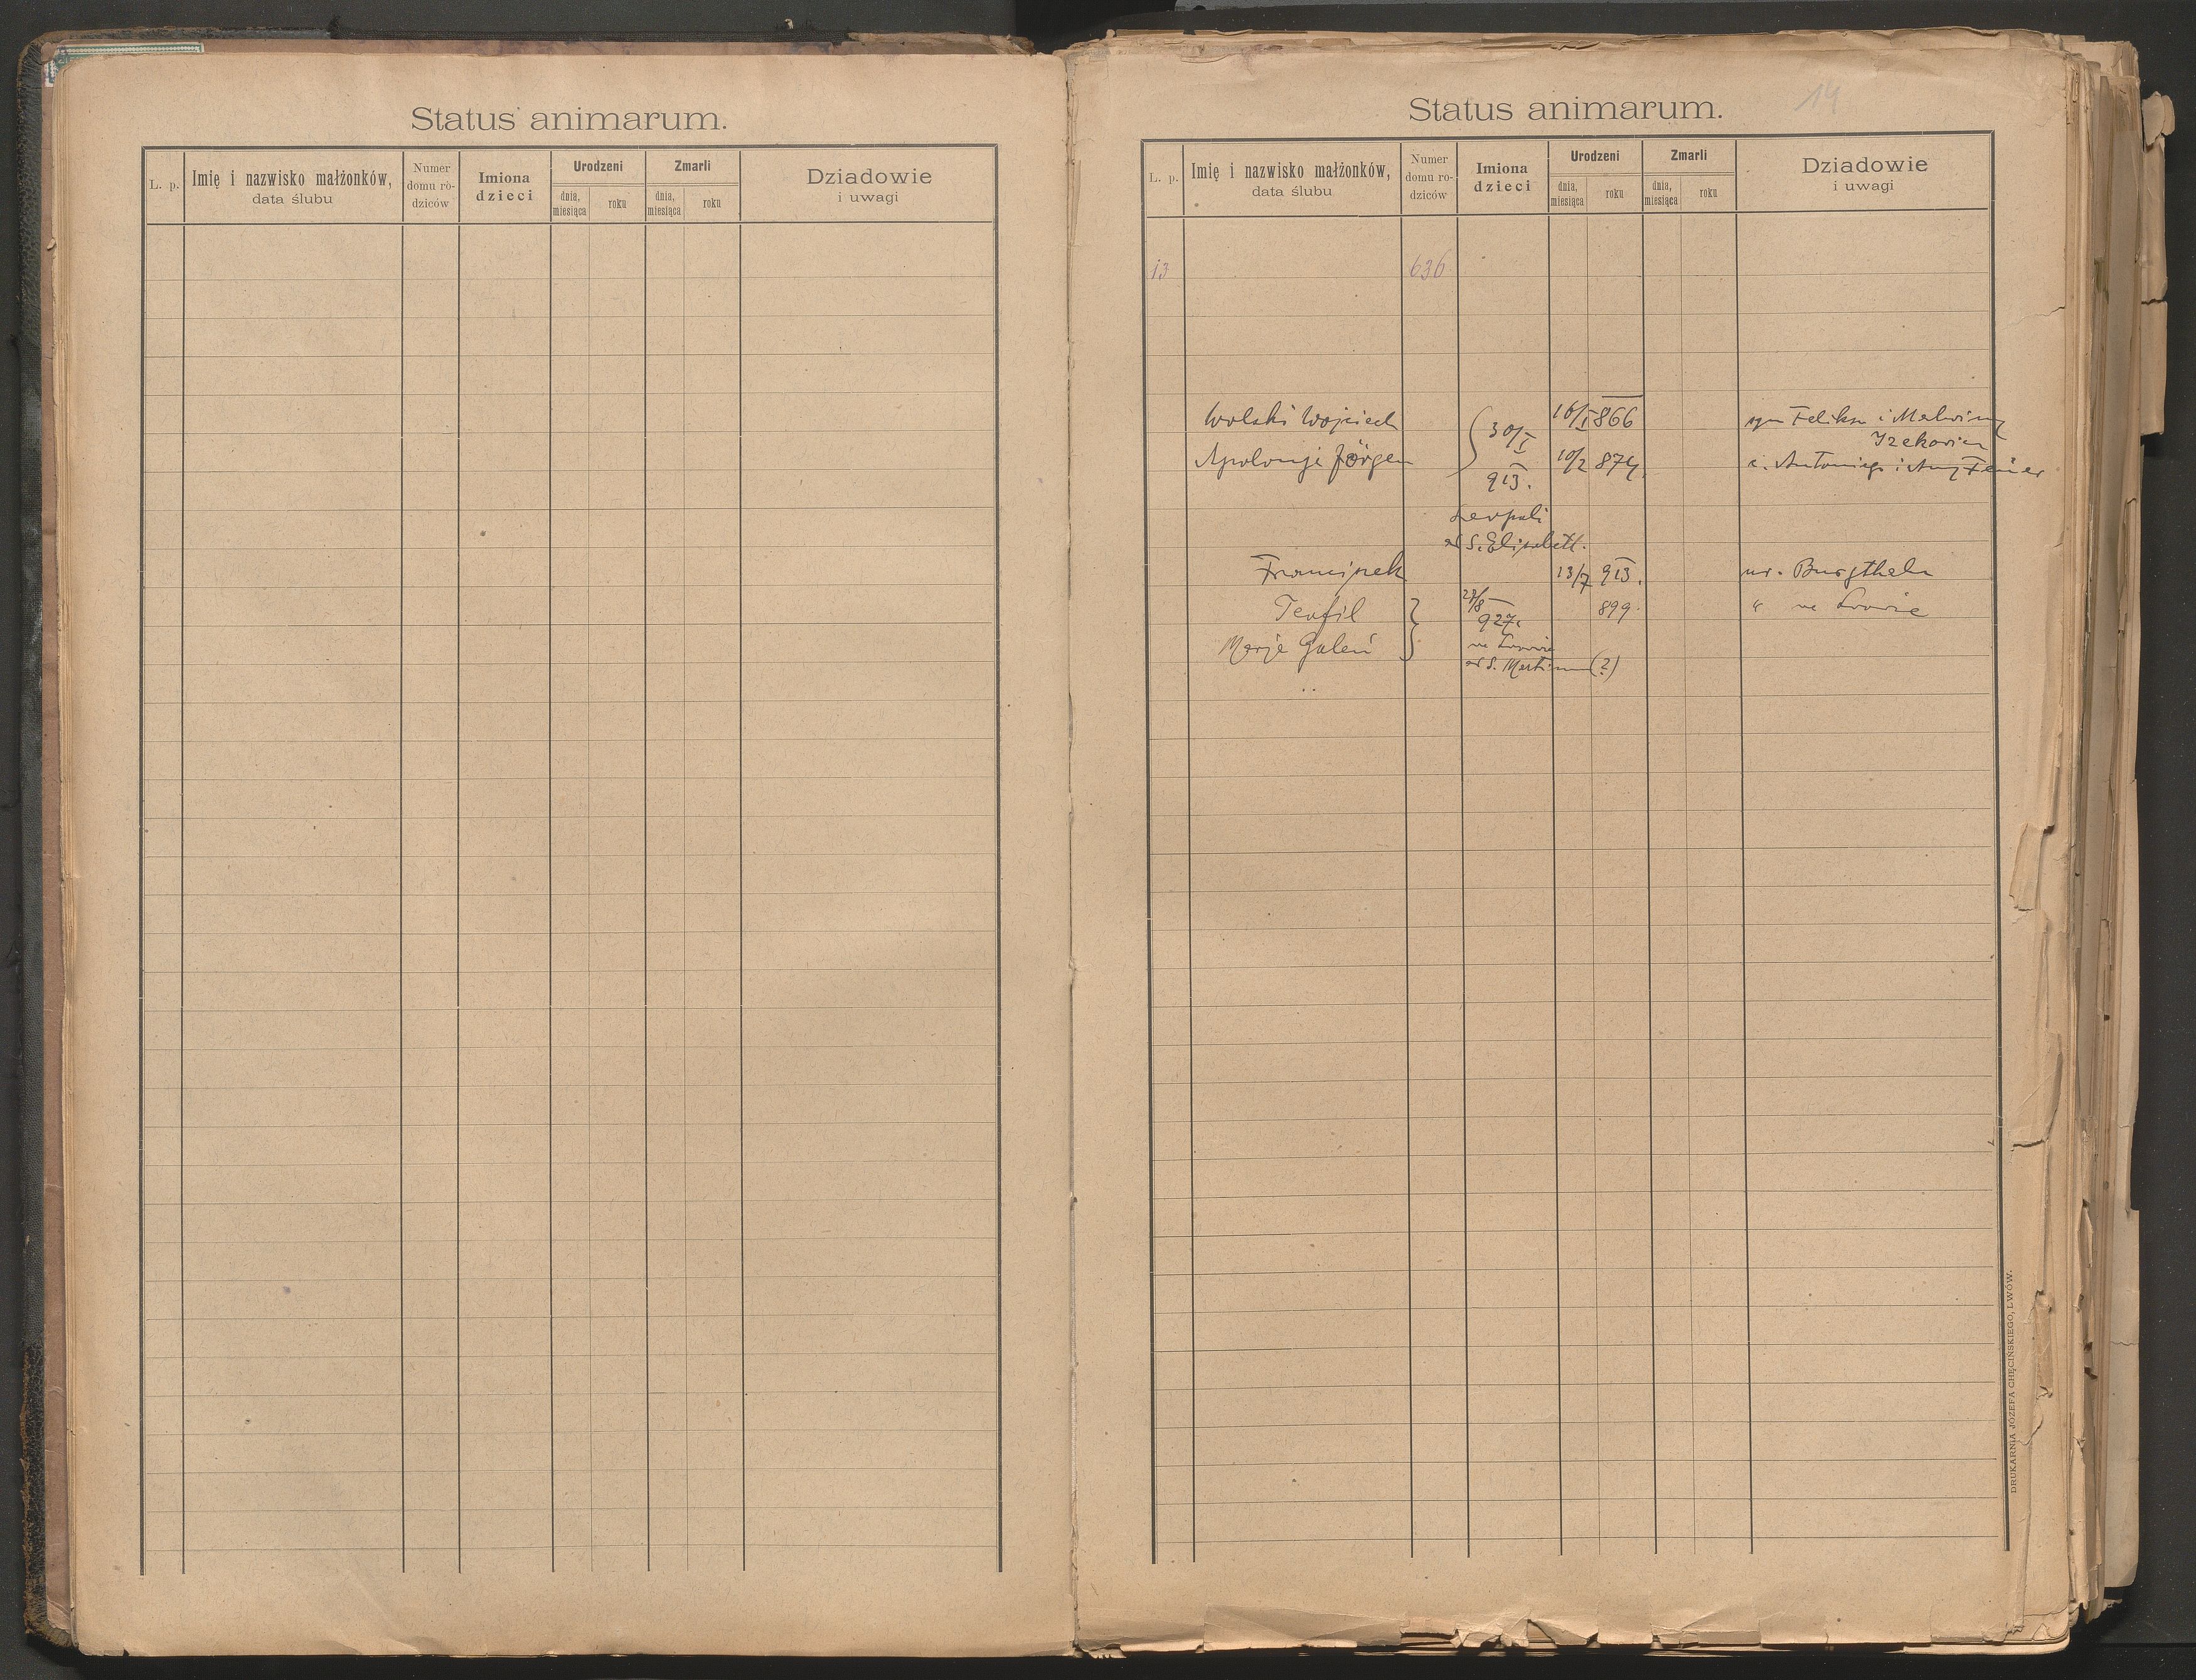 Status animarum.
L. p.
Imię i nazwisko małżonków,
data ślubu
Numer
domu ro-
dziców
Imiona
dzieci
Urodzeni
dnia,
miesiąca
roku
Zmarli
dnia,
miesiąca
roku
Dziadowie
i uwagi
Status animarum.
14
L. p.
Imię i nazwisko małżonków,
data ślubu
Numer
domu ro-
dziców
Imiona
dzieci
Urodzeni
dnia,
miesiąca
roku
Zmarli
dnia,
miesiąca
roku
Dziadowie
i uwagi
13 636
Wolski Wojciech 30/I 16/I 866 syn Feliksa i Malwiny
Apolonja Jörgen 913. 10/2 874. c. Antoniego i Anny
Leopoli
ad S. Elisabeth.
Franciszek 13/7 913. ur. Burgthal
Teofil 27/8 927. 899. " we Lwowie
Marja Galeń we Lwowie
ad S. Martinum (?)
DRUKARNIA JÓZEFA CHĘCIŃSKIEGO, LWÓW.